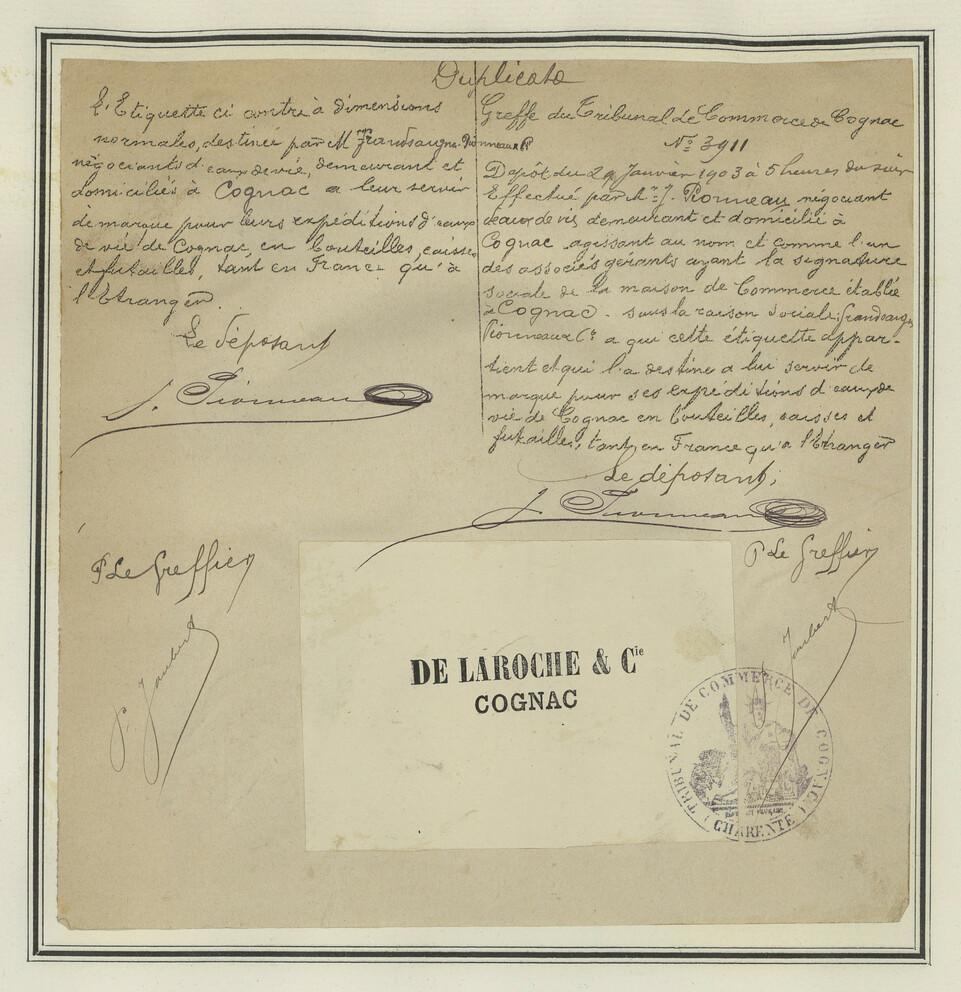 Duplicata
L'Etiquette ci contre à dimensions
normales, destinée par M Grandsaigne Pionneau & Cie
négociants d'eaux de vie, demeurant et
domiciliés à Cognac a leur servir
de marque pour leurs expéditions d'eaux
de vie de Cognac, en bouteilles, caisses
et futailles, tant en France qu'à
l'Etranger
Le déposant
J. Pionneau
P Le Greffier
P. Joubert
Greffe du Tribunal de Commerce de Cognac
No 3911
Dépôt du 29 Janvier 1903 à 5 heures du soir
Effectué par Mr J. Pionneau négociant
d'eaux de vie demeurant et domicilié à
Cognac agissant au nom et comme l'un
des associés gérants ayant la signature
sociale de la maison de Commerce établie
à Cognac sous la raison sociale Grandsaigne
Pionneau & Cie a qui cette étiquette appar-
tient et qui l'a destine a lui servir de
marque pour ses expéditions d'eaux de
vie de Cognac en bouteilles, caisses et
futailles, tant en France qu'a l'Etranger
Le déposant,
J. Pionneau
P Le Greffier
Joubert
DE LAROCHE & Cie
COGNAC
TRIBUNAL DE COMMERCE DE COGNAC
(CHARENTE)